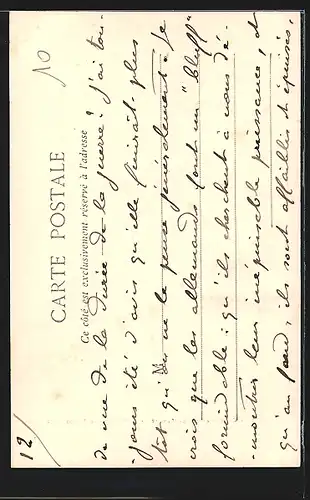 12/
10
CARTE POSTALE
Ce côté est exclusivement réservé à l'adresse
de vue de la durée de la guerre? j'ai tou-
-jours été d'avis qu'elle finirait plus
tôt qu'on ne le pense généralement. Je
crois que les allemands font un "bluff"
formidable : qu'ils cherchent à nous dé-
-montrer leur inépuisable puissance, et
qu'au fond, ils sont affaiblis et épuisés,